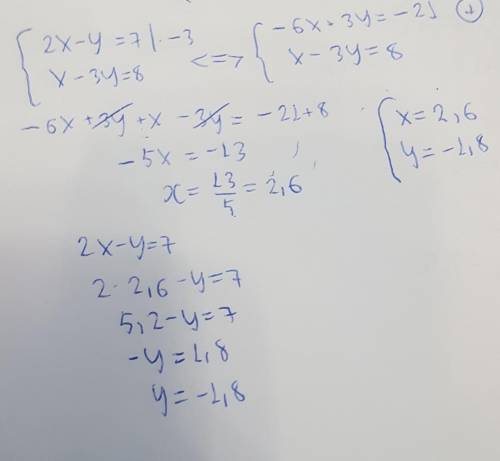 { 2x-y=7 |·-3 <=> { -6x+3y=-21 (+)
{ x-3y=8 { x-3y=8
-6x+3y+x-3y=-21+8
-5x=-13
x=13/5=2,6
{ x=2,6
{ y=-1,8
2x-y=7
2·2,6-y=7
5,2-y=7
-y=1,8
y=-1,8